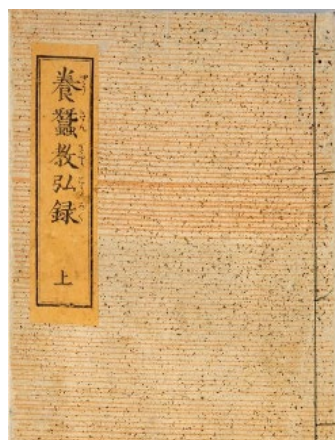 養蠶教弘録
上